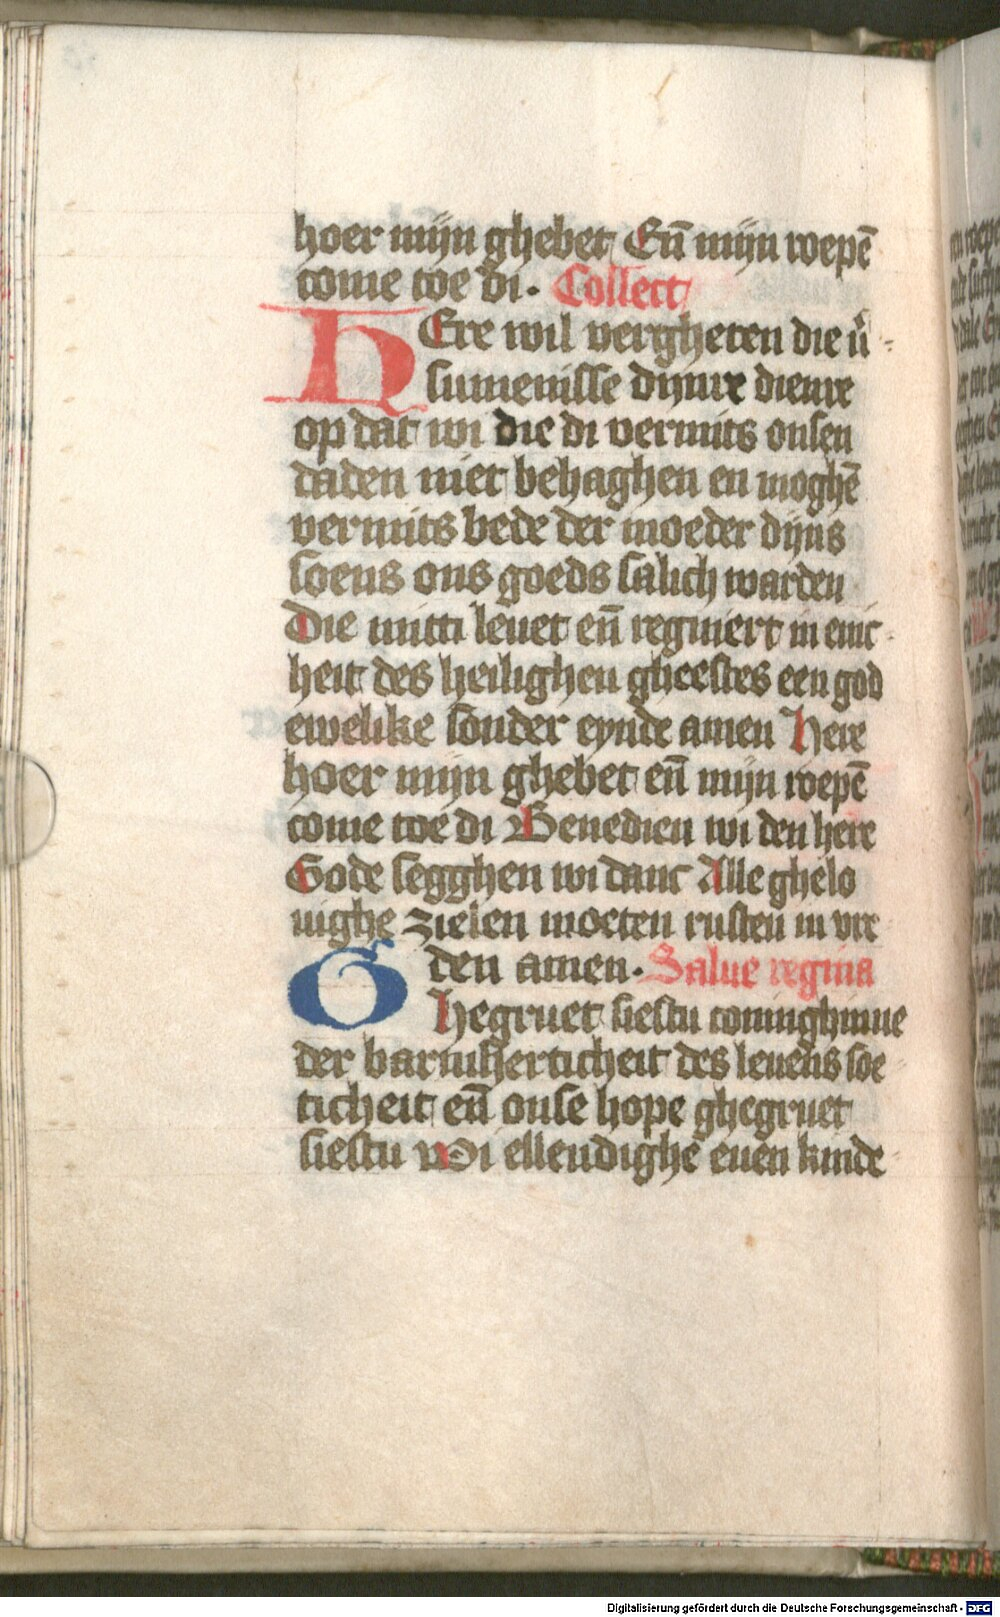 hoer mijn ghebet Eñ mijn roepē
come toe di. Collect
HEre wil vergheten die v̉
sumenisse dijnre dienre
op dat wi die di vermits onsen
daden niet behaghen en moghē
vermits bede der moeder dijns
soens ons goeds salich warden
Die mitti leuet eñ regniert in enic
heit des heilighen gheestes een god
ewelike sonder eynde amen Here
hoer mijn ghebet eñ mijn roepē
come toe di Benedien wi den here
Gode segghen wi danc Alle ghelo
uighe zielen moeten rusten in vre
den amen. Salue regina
Ghegruet siestu coninghinne
der barmherticheit des leuens soe
ticheit eñ onse hope ghegruet
siestu Wi ellendighe euen kinde
Digitalisierung gefördert durch die Deutsche Forschungsgemeinschaft - DFG